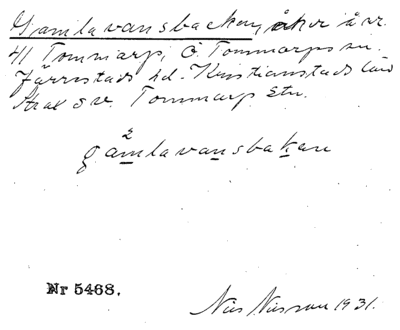 Gamlavansbacken, åker å nr.
41 Tommarp, Ö. Tommarps sn.
Järrestads hd. Kristianstads län
Strax s v. Tommarp Stn.
2
gamlavansbakan
Nr 5468.
Nils Nilsson 1931.